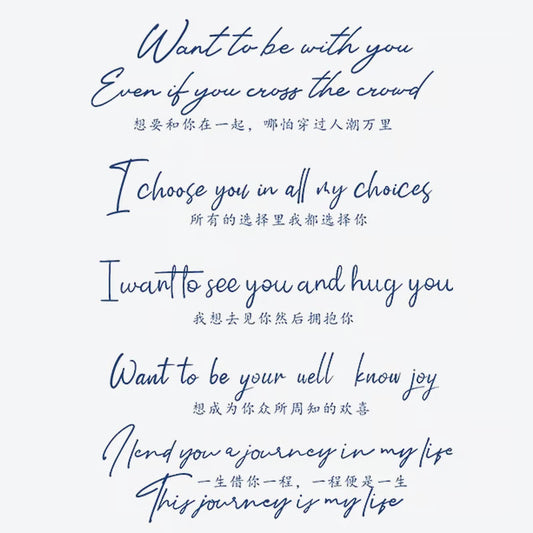 Want to be with you
Even if you cross the crowd
想要和你在一起，哪怕穿过人潮万里
I choose you in all my choices
所有的选择里我都选择你
I want to see you and hug you
我想去见你然后拥抱你
Want to be your well know joy
想成为你众所周知的欢喜
I lend you a journey in my life
一生借你一程，一程便是一生
This journey is my life